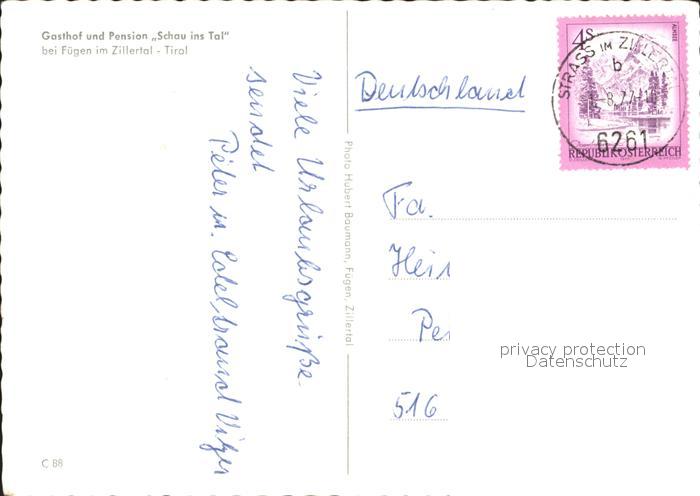 Gasthof und Pension „Schau ins Tal“
bei Fügen im Zillertal - Tirol
Viele Urlaubsgrüße
sendet
Peter u. Edeltraud
Photo Hubert Baumann, Fügen, Zillertal
C 88
Deutschland
4S
ALMSEE
REPUBLIK ÖSTERREICH
STRASS IM ZILLER
b
6261
Fa.
Hein
Pe
516
privacy protection
Datenschutz